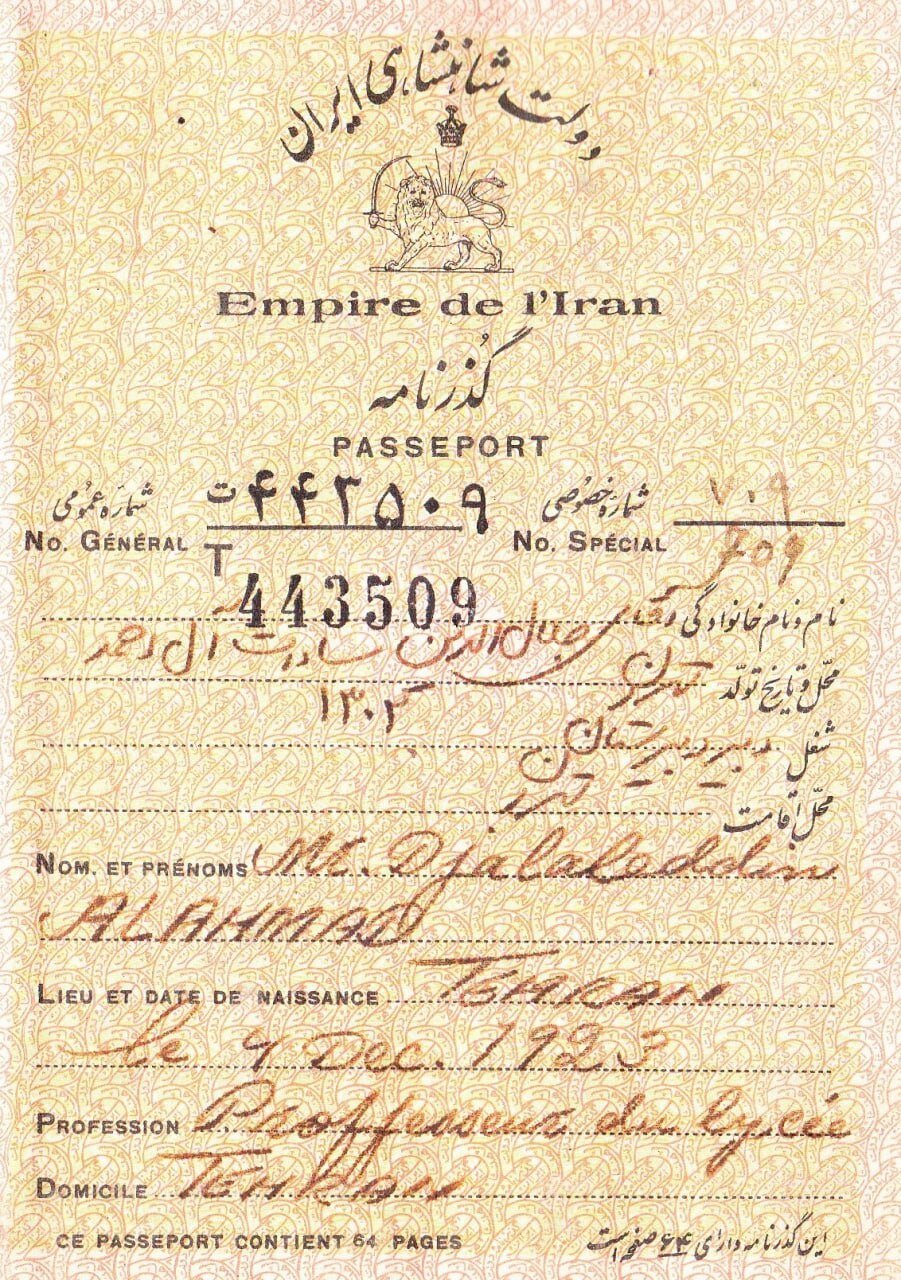 دولت شاهنشاهی ایران
Empire de l'Iran
گذرنامه
PASSEPORT
شماره عمومی ت ۴۴۳۵۰۹ شماره خصوصی ۷۰۹
No. GÉNÉRAL T 443509 No. SPÉCIAL 709
نام و نام خانوادگی آقای جلال الدین سادات آل احمد
محل و تاریخ تولد تهران
۱۳۰۲
شغل دبیر دبیرستان
محل اقامت
NOM. ET PRÉNOMS M. Djalaleddin
ALAHMAD
LIEU ET DATE DE NAISSANCE TEHRAN
le 4 Dec. 1923
PROFESSION Proffesseur du lycée
DOMICILE TEHRAN
CE PASSEPORT CONTIENT 64 PAGES این گذرنامه دارای ۶۴ صفحه است